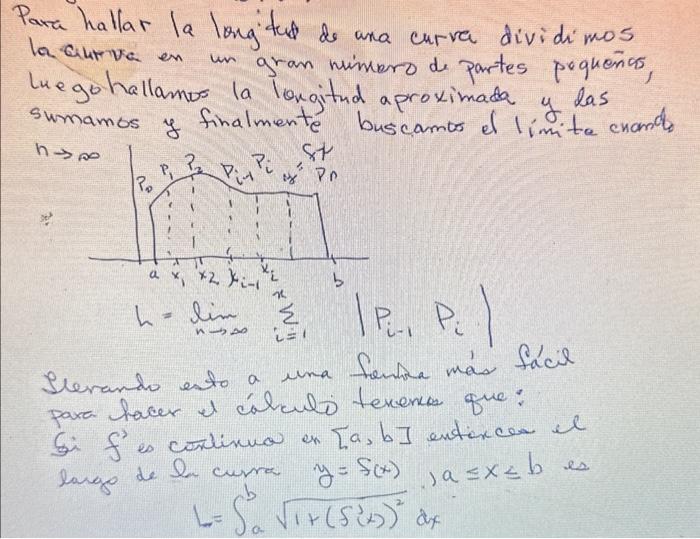 Para hallar la longitud de una curva dividimos
la curva en un gran número de partes pequeñas,
luego hallamos la longitud aproximada y las
sumamos y finalmente buscamos el límite cuando
n→∞
P₀ P₁ P₂ Pᵢ₋₁ Pᵢ Pₙ
a x₁ x₂ xᵢ₋₁ xᵢ b
L = lim n→∞ Σ i=1 |Pᵢ₋₁ Pᵢ|
Llevando esto a una más fácil
para hacer el cálculo tenemos que:
Si f' es continua en [a, b] entonces el
largo de la curva y = f(x), a ≤ x ≤ b es
L = ∫ₐᵇ √1+(f'(x))² dx